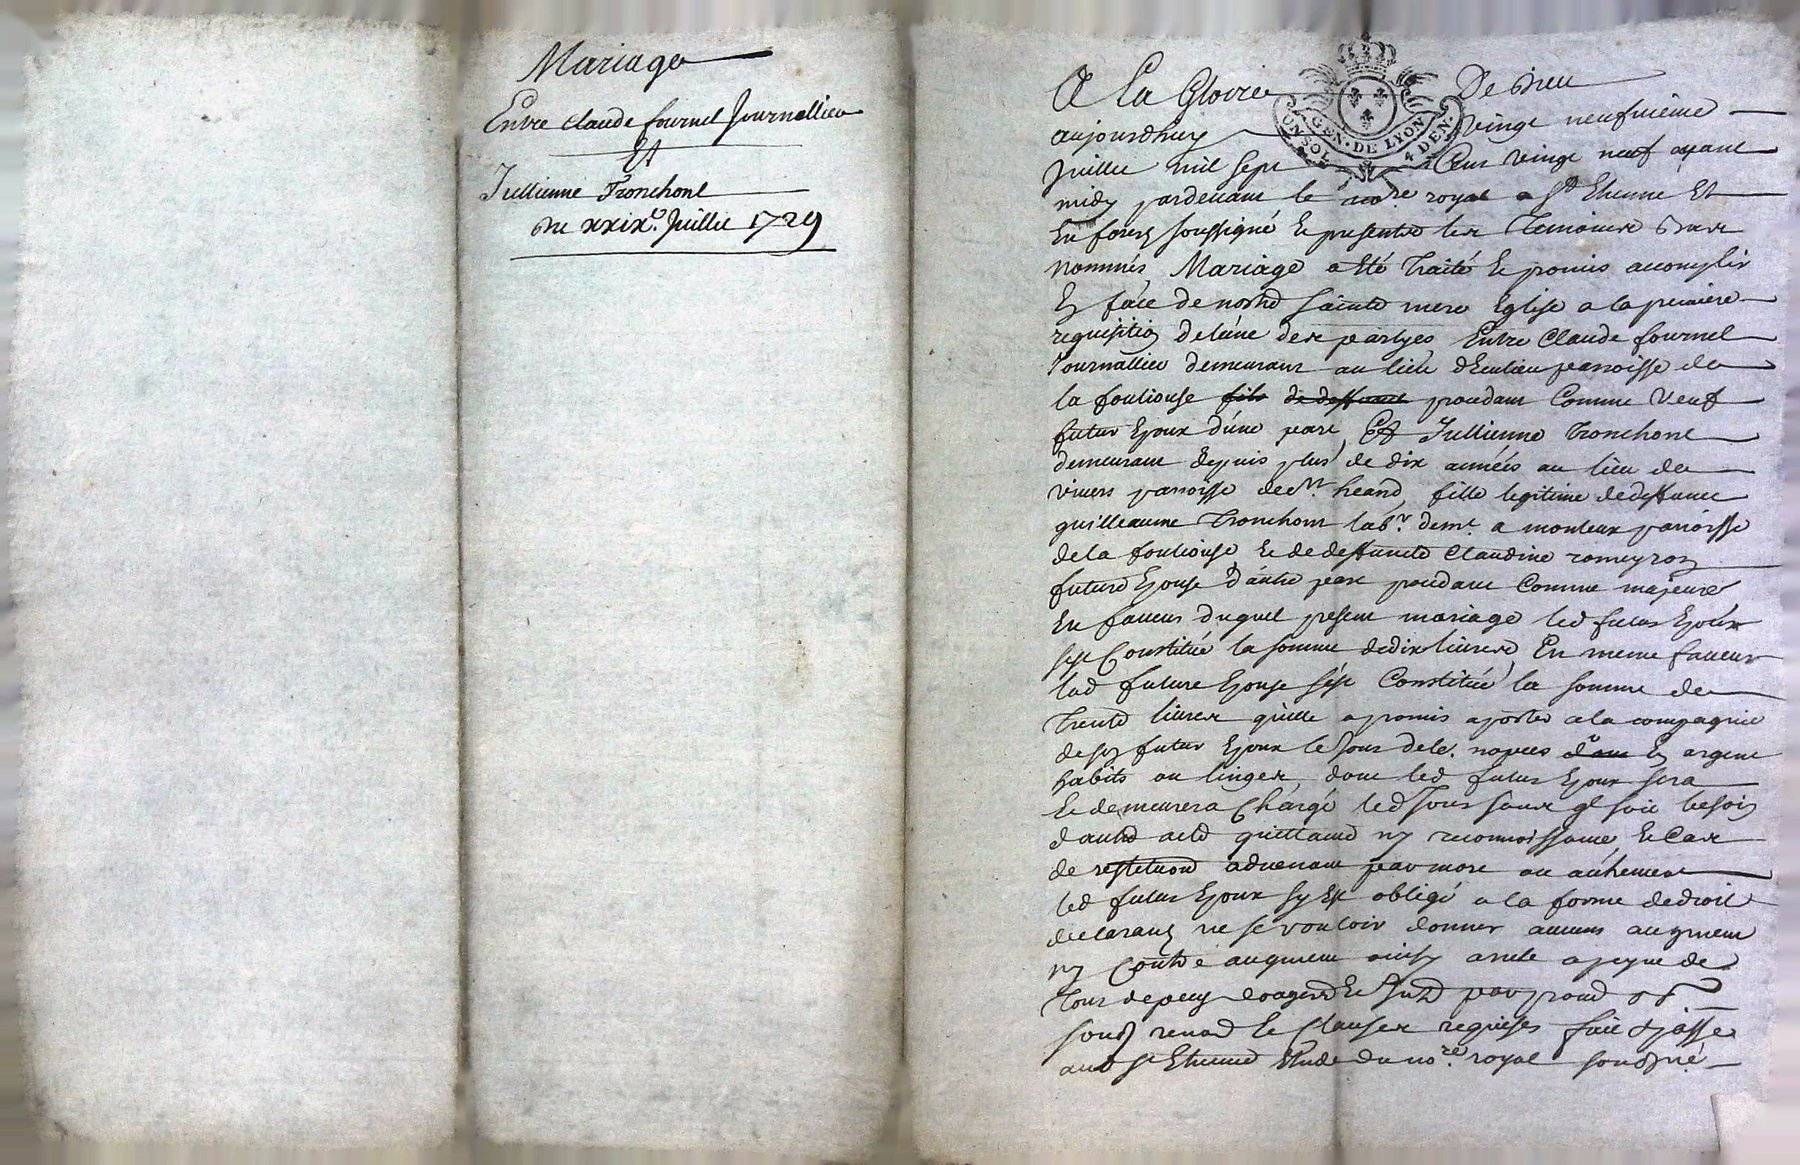 Mariage
Entre Claude fournel Journallier
Et
Jullienne Tronchont
Du xxixe. Juillet 1729
A La Gloire De Dieu
GEN. DE LYON
UN SOL 4 DEN.
aujourdhuy vingt neufvieme
Juillet mil sept Cens vingt neuf apant
midy pardevant le nore royal a St Etienne Et
En forest soussigné Et presents les Temoins Bas
nommés, Mariage a Eté Traité Et promis accomplir
En face de nostre sainte mere Eglise a la premiere
requisition de lune des partyes, Entre Claude fournel
Journallier demeurant au lieu parroisse de
la fouliouse fils de deffunct procedant Comme veuf
futur Epoux d'une part, Et Jullienne Tronchont
demeurant depuis plus de dix années au lieu de
vivers parroisse de St. heand, fille legitime de deffunct
guilleaume Tronchont labr. demt. a monteux parroisse
de la fouliouse, Et de deffuncte Claudine romeyron
future Epouse d'autre part procedant Comme majeure
En faveur duquel present mariage led futur Epoux
sest Constitué la somme de dix livres, En meme faveur
lad future Epouse s'est Constitué la somme de
Trente livres quelle a promis aporter a la compagnie
de son futur Epoux le Jour de le. nopces En argent
habits ou linges, dont led futur Epoux sera
Et demeurera Chargé led Jour sans ql soit besoin
dautre acte quittance ny reconnoissance, Et Cas
de restitution advenant par mort ou autrement
led futur Epoux sy Est obligé a la forme de droit
declarant ne se vouloir donner aucuns augment
ny Contre augment ainsy a peyne de
Tous depens
renon Et Clauses requises fait Et passé
aud St Etienne Etude du nore. royal soussigné